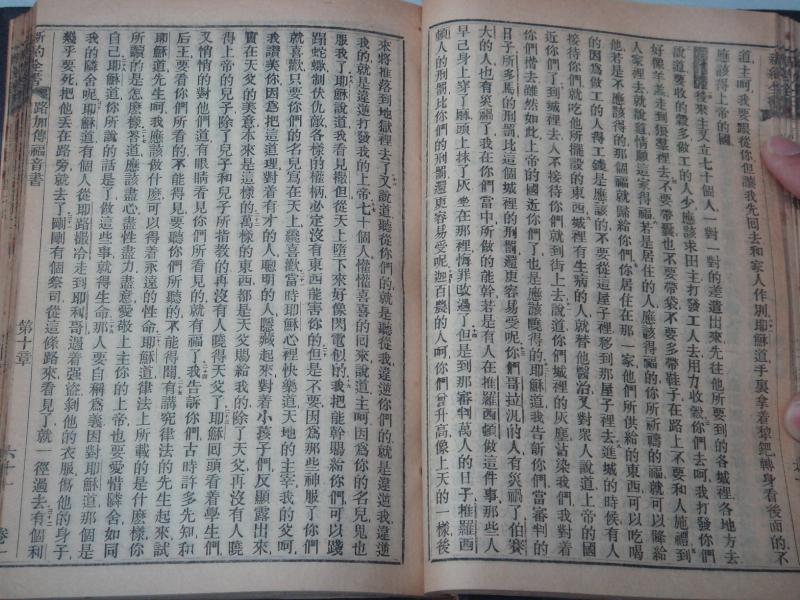 道主呵我要跟從你但讓我先回去和家人作別耶穌道手裏拿着犁鈀轉身看後面的不
應該得上帝的國
後來主又立七十個人一對一對的差遣出來先往他所要到的各城裡各地方去
說道要收的穀多做工的人少應該求田主打發工人去用力收穀你們去呵我打發你們
好像羊羔走到狼羣裡去不要帶囊也不要帶袋不要多帶鞋子在路上不要和人施禮到
人家裡去就說道情願這家得福若是居住的人應該得福的你所祈禱的福就可以降給
他若是不應該得的那個福就歸給你們你居住在那一家他們所供給的東西可以吃喝
的因爲做工的人得工錢是應該的不要從這屋子裡移到那屋子裡去進城的時候有人
接待你們就吃他所擺設的東西城裡有生病的人就替他醫治又對衆人說道上帝的國
近你們了到城裡去人不接待你們就到街上去說道你們城裡的灰塵沾染我們我對着
你們撢去雖然如此上帝的國近你們了也是應該曉得的耶穌道我告訴你們當審判的
日子所多馬的刑罰比這個城裡的刑罰還更容易受呢你們哥拉汎的人有災禍了伯賽
大的人也有災禍了我在你們當中所做的能幹若是有人在推羅西頓做這件事那些人
早已身上穿了麻頭上抹了灰坐在那裡悔罪改過了但是到那審判萬人的日子推羅西
頓人的刑罰比你們的刑罰還更容易受呢迦百農的人呵你們曾升高像上天的一樣後
來將推落到地獄裡去了又說道聽從你們的就是聽從我違逆你們的就是違逆我違逆
我的就是違逆打發我的上帝七十個人懽懽喜喜的回來說道主呵因爲你的名兒鬼也
服我了耶穌說道我看見撒但從天上墮下來好像閃電似的我把能幹賜給你們可以踐
踏蛇蠍制伏仇敵各樣的權柄必定沒有東西能害你的但是不要因爲那些神服了你們
就喜歡只要你們的名兒寫在天上纔喜歡當時耶穌心裡快樂道天地的主宰我的父呵
我讚美你因爲把這道理對着有才的人聰明的人隱藏起來對着小孩子們反顯露出來
實在天父的美意本來是這樣的萬樣的東西都是天父賜給我的除了天父再沒有人曉
得上帝的兒子除了兒子和兒子所指教的再沒有人曉得天父了耶穌回頭看着學生們
又悄悄的對他們道有眼睛看見你們所看見的就有福了我告訴你們古時許多先知和
后王要看你們所看的不能得見要聽你們所聽的不能得聞有講究律法的先生起來試
耶穌道先生呵我應該做什麼可以得着永遠的性命耶穌道律法上所載的是什麼樣你
所讀的是怎麼樣答道應該盡心盡性盡力盡意愛敬上主你的上帝也要愛惜隣舍如同
自己耶穌道你所說的話是了你做這些事就得生命那人要自稱爲義因對耶穌道那個是
我的隣舍呢耶穌道有個人從耶路撒冷走到耶利哥遇着强盜剝他的衣服傷他的身子
幾乎要死把他丟在路旁就去了剛剛有個祭司從這條路來看見了就一徑過去有個利
新約全書 路加傳福音書 第十章 六十一 卷一